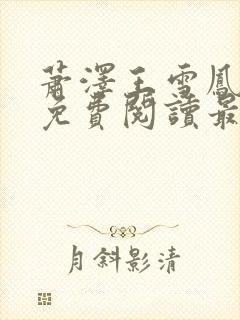 蕭澤王雪鳳
免費閱讀最
月斜影清